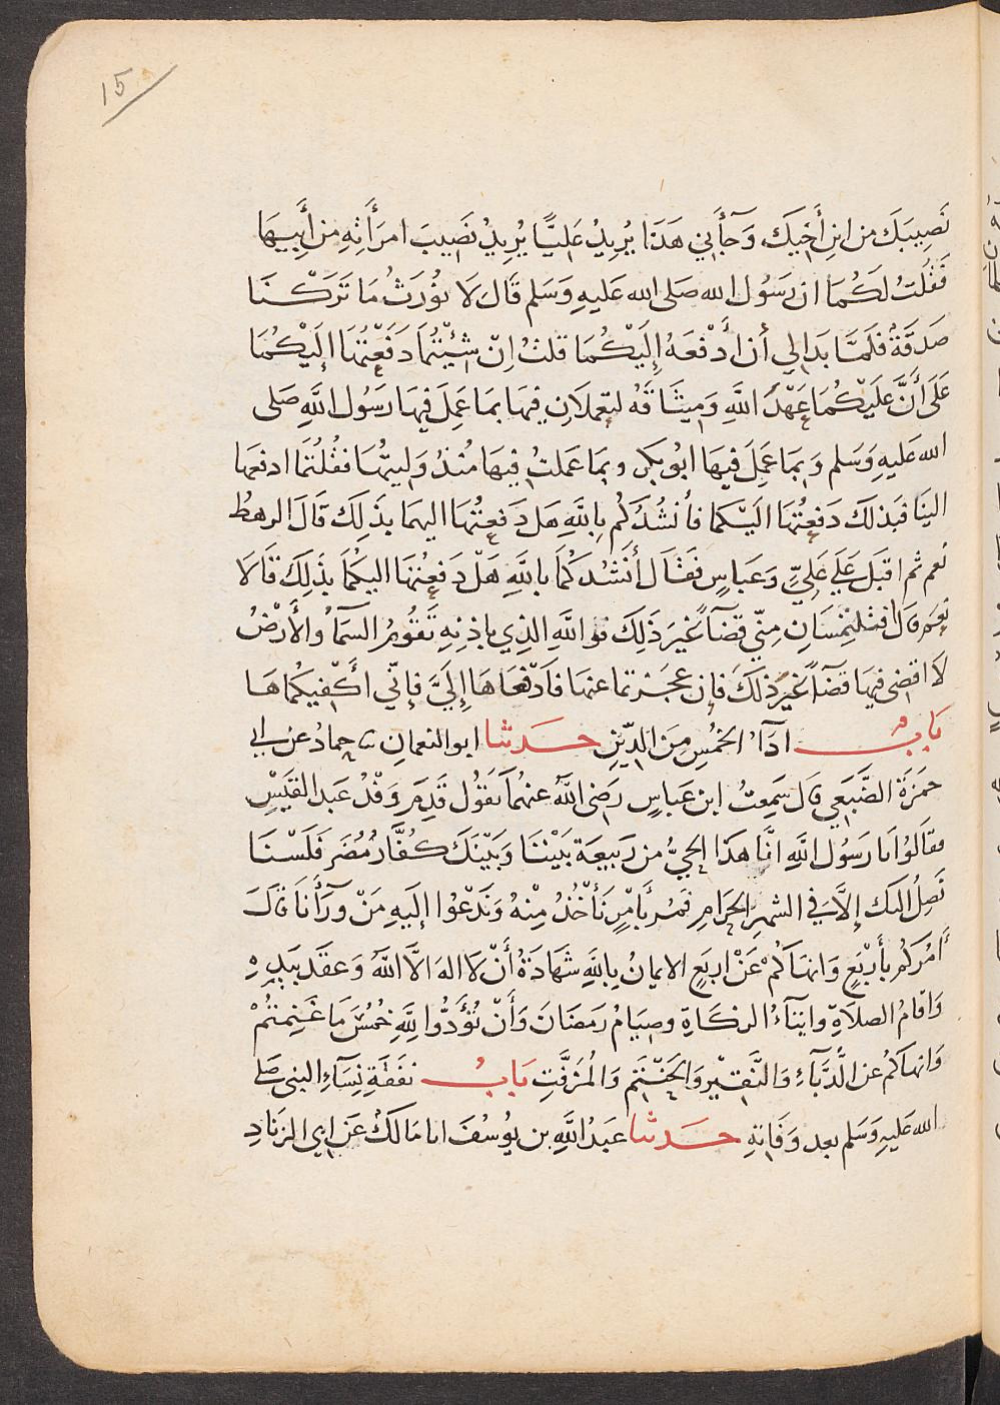 15
نَصِيبَكَ من ابنِ أَخيكَ وَجَآَني هَذَا يُرِيدُ عَليًّا يُرِيدُ نَصِيبَ امرَأَتِهِ من أَبِيهَا
فَقُلتُ لَكُمَا ان رَسُول الله صَلى الله عَليهِ وَسَلم قَالَ لَا نُورَثُ مَا تَرَكْنَا
صَدَقَةٌ فلَمَّا بَدَا لِي أن أَدْفَعَهُ إِلَيْكُمَا قلتُ اِنْ شِئْتُمَا دَفَعْتُهَا اِلَيْكُمَا
عَلَى أَنَّ عَلَيْكُمَا عَهْدَ اللَّهِ وَمِيثَاقَهُ لتعملَانِ فيهَا بمَا عَمِلَ فِيهَا رَسُول اللَّهِ صَلى
الله عَليهِ وَسَلم وَبمَا عَمِلَ فيهَا ابُو بكرٍ وبمَا عَملتُ فيهَا مُنْذُ وَليتُهَا فقُلتُمَا ادفعهَا
الينَا فبذلكَ دَفعتُهَا الَيْكما فأنشُدُكُم بِاللَّهِ هَل دَفعتُهَا اليهمَا بذَلِكَ قَالَ الرهطُ
نعم ثم اقبَل عَلَى عَلِيٍّ وَعَباسٍ فَقَال أَنشُدُكُمَا باللَّهِ هَلْ دَفَعتُهَا اليكُمَا بذَلِكَ قَالَا
نعَم قَال افتلتمسَانِ مِنّي قضَآءً غيرَ ذَلِكَ فو اللَّهِ الذِي باذنِهِ تَقُومُ السَمَآءُ والأَرْضُ
لَا اقضي فيهَا قضَآءً غيرَ ذلكَ فإن عجَزتما عنهَا فَادْفعَاهَا إِلَيَّ فإنّي أَكْفيكُمَاهَا
بَابُ ادَآءُ الخمُسِ مِنَ الدِّينِ حَدثنا ابو النعمانِ ثنا حمادُ عن ابي
حمزَةَ الضَّبَعي قَال سَمِعتُ ابن عَباسٍ رَضى اللَّه عنهُمَا يَقُول قَدِمَ وَفْدُ عَبد القَيْسِ
فقَالُوا يَا رَسُول اللَّهِ انَّا هَذَا الحَيُّ من رَبيعَة بَيْنَنَا وَبَيْنَكَ كُفَّارُ مُضَر فَلَسْنَا
نَصِلُ اليك إِلَّا في الشهرِ الحَرَامِ فَمُر بأَمْرٍ نَأْخُذُ مِنْهُ وَنَدْعُوا إلَيهِ مَنْ وَرَآءَنَا قَالَ
أَمُركُم بأَربَعٍ وَانهَاكُمْ عَنْ اربَعٍ الايمانُ بِاللَّهِ شَهَادَةُ أَنْ لَا اله الَّا اللَّهُ وَعقَد بيَدِهِ
وَاقامُ الصلَاةِ وايتَآءُ الزكَاةِ وصِيَامُ رَمضَانَ وَأَنْ تُؤَدُّوا لِلَّهِ خُمُسَ مَا غَنِمتُمْ
وَانهاكُم عن الدُّبَّآءِ وَالنَّقيْرِ وَالحَنْتَمِ وَالمُزَفَّتِ بَابُ نفَقَةِ نِسَآءِ النبي صَلى
الله عَليهِ وَسَلم بعد وَفَاتِهِ حَدثنا عَبدُ اللَّهِ بن يُوسُفَ انا مَالكٌ عَن ابي الزنَادِ